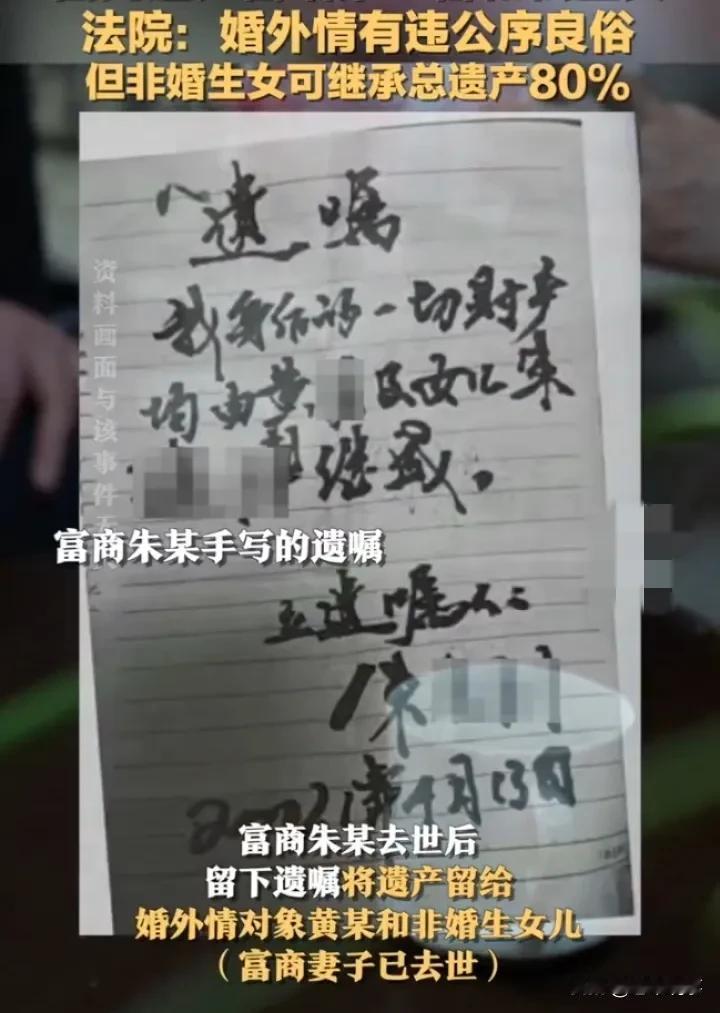 法院：婚外情有违公序良俗
但非婚生女可继承总遗产80%
遗嘱
我身后的一切财产
均由黄 及女儿朱
继承。
资料画面与该事件无
富商朱某手写的遗嘱
立遗嘱人：
朱
月13日
富商朱某去世后
留下遗嘱将遗产留给
婚外情对象黄某和非婚生女儿
（富商妻子已去世）